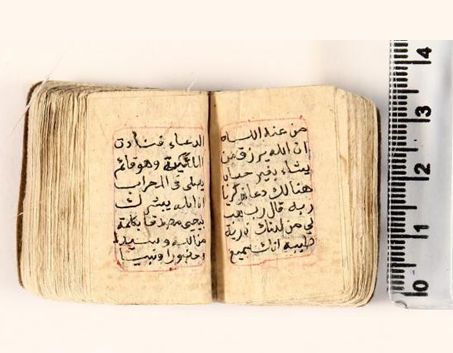 من عند الله
ان الله يرزق من
يشاء بغير حساب
هنالك دعا زكريا
ربه قال رب هب
لي من لدنك ذرية
طيبة انك سميع
الدعاء فنادته
الملئكة وهو قائم
يصلى فى المحراب
ان الله يبشرك
بيحيى مصدقا بكلمة
من الله وسيدا
وحصورا ونبيا
4
3
2
1
0